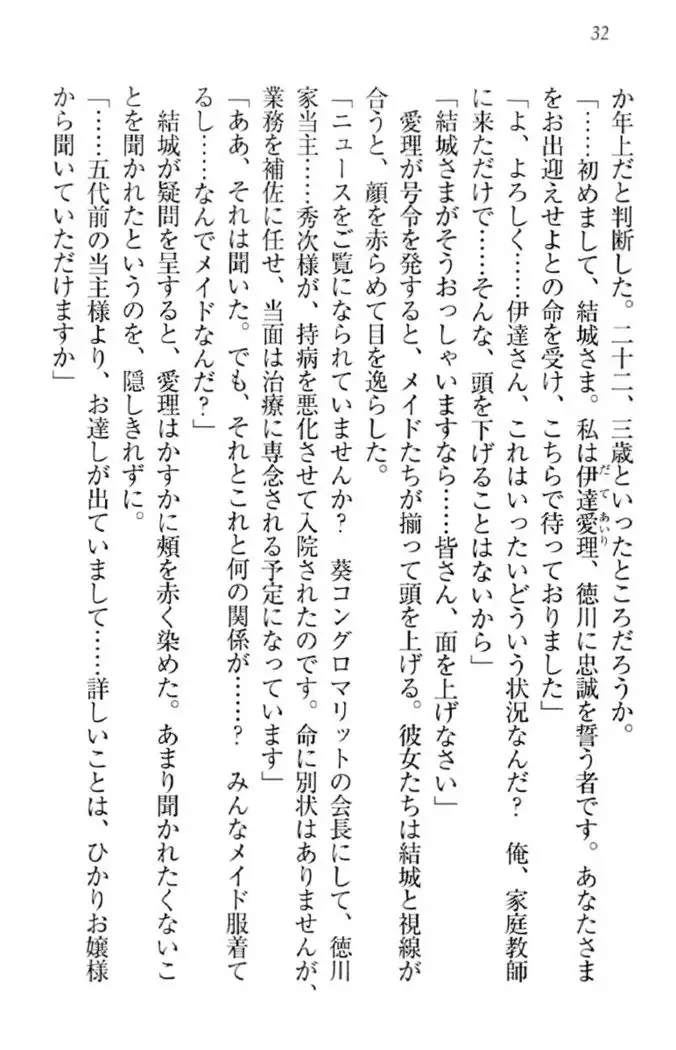 32
か年上だと判断した。二十二、三歳といったところだろうか。
「……初めまして、結城さま。私は伊達愛理、徳川に忠誠を誓う者です。あなたさま
だてあいり
をお出迎えせよとの命を受け、こちらで待っておりました」
「よ、よろしく……伊達さん、これはいったいどういう状況なんだ？　俺、家庭教師
に来ただけで……そんな、頭を下げることはないから」
「結城さまがそうおっしゃいますなら……皆さん、面を上げなさい」
愛理が号令を発すると、メイドたちが揃って頭を上げる。彼女たちは結城と視線が
合うと、顔を赤らめて目を逸らした。
「ニュースをご覧になられていませんか？　葵コングロマリットの会長にして、徳川
家当主……秀次様が、持病を悪化させて入院されたのです。命に別状はありませんが、
業務を補佐に任せ、当面は治療に専念される予定になっています」
「ああ、それは聞いた。でも、それとこれと何の関係が……？　みんなメイド服着て
るし……なんでメイドなんだ？」
結城が疑問を呈すると、愛理はかすかに頬を赤く染めた。あまり聞かれたくないこ
とを聞かれたというのを、隠しきれずに。
「……五代前の当主様より、お達しが出ていまして……詳しいことは、ひかりお嬢様
から聞いていただけますか」